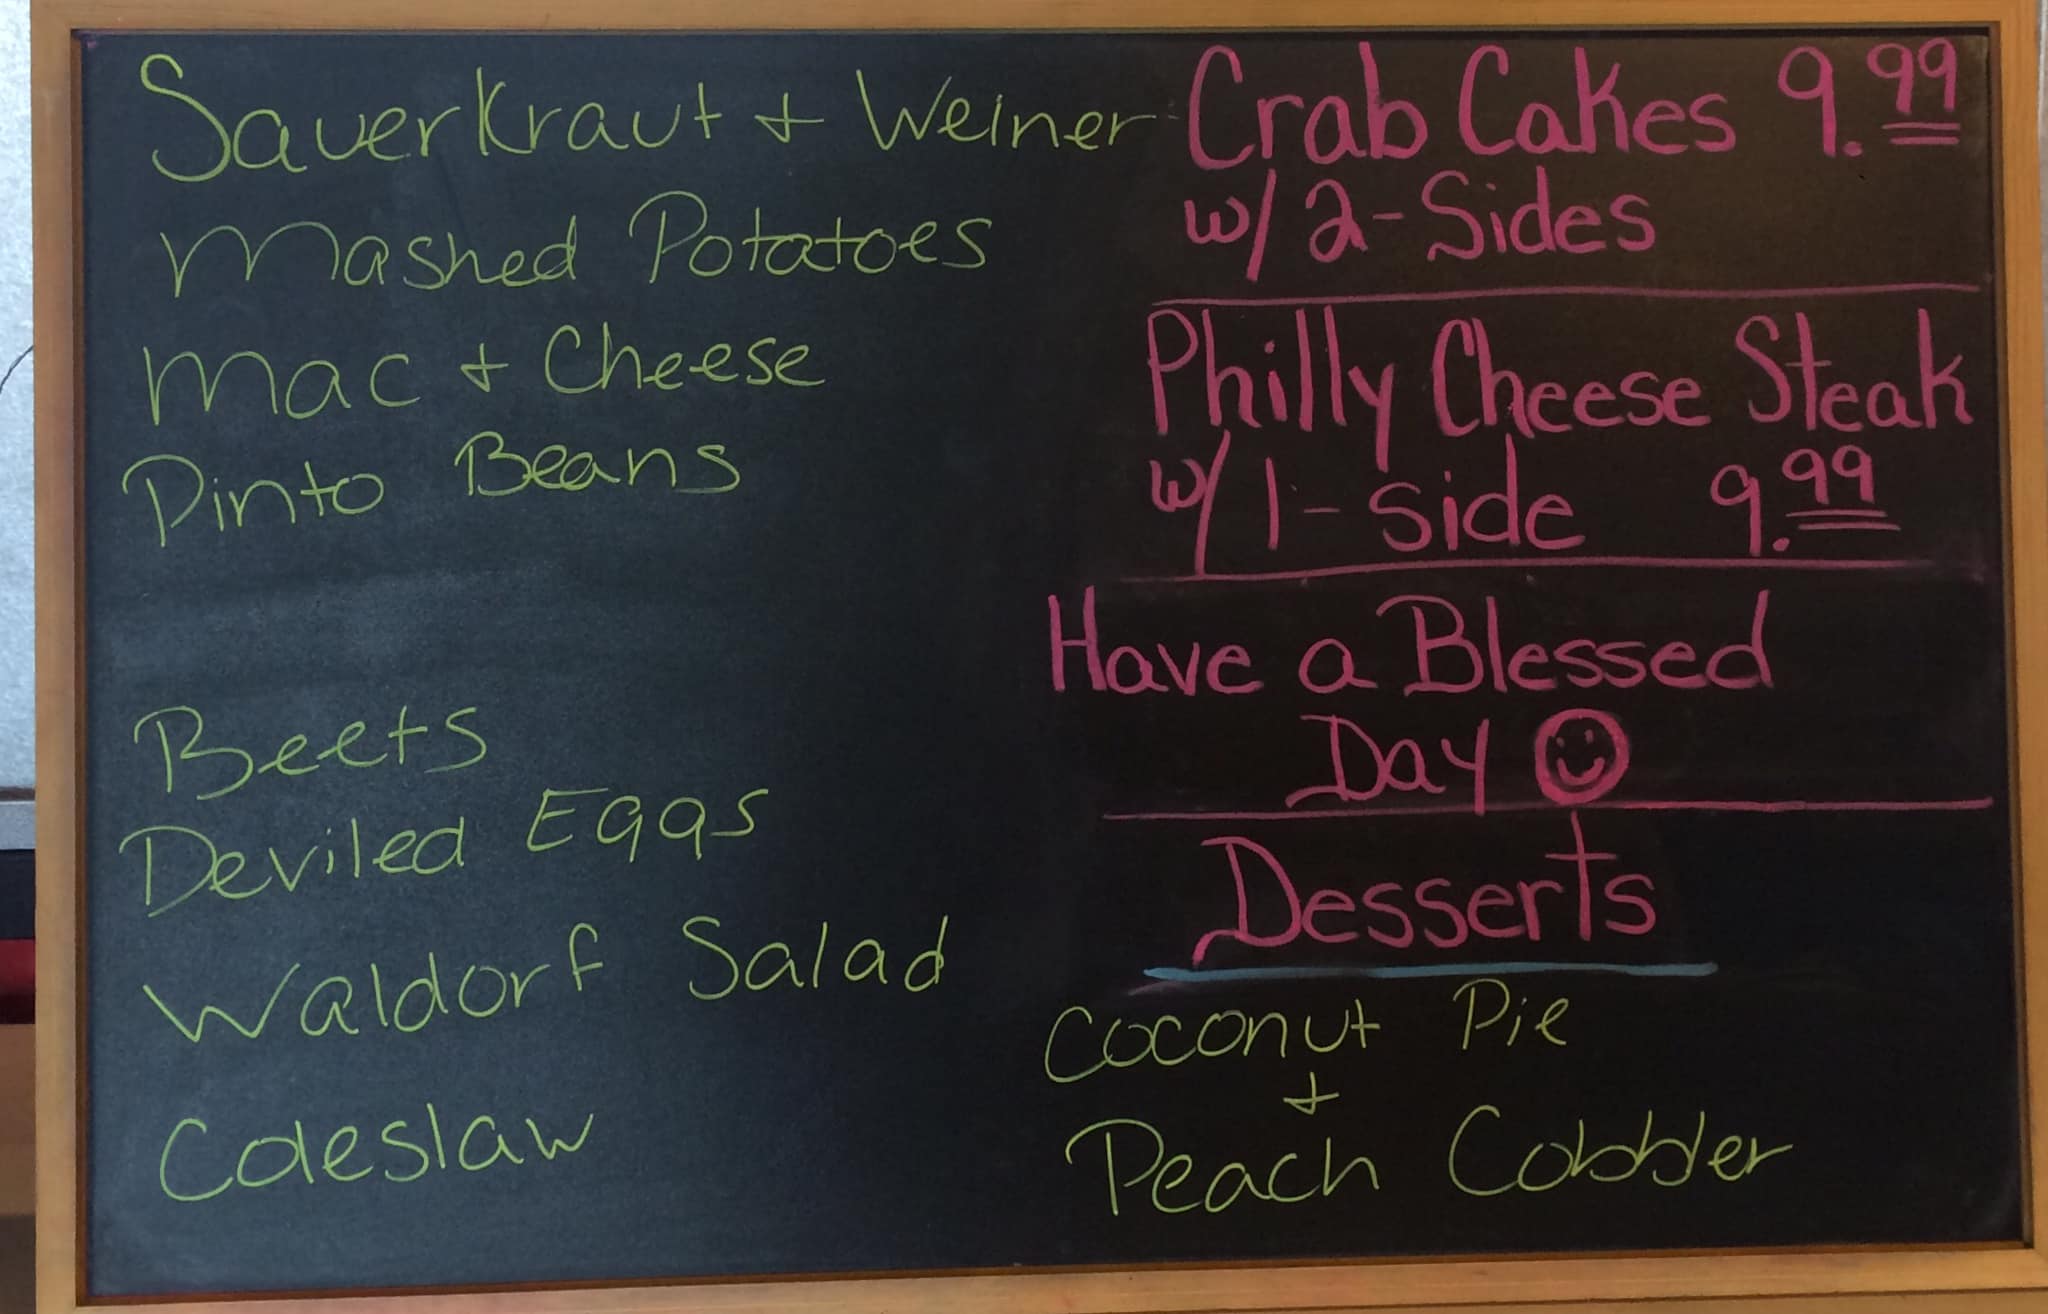 Sauerkraut + Weiner
Mashed Potatoes
Mac + Cheese
Pinto Beans
Beets
Deviled Eggs
Waldorf Salad
Coleslaw
Crab Cakes 9.99
w/ 2-Sides
Philly Cheese Steak
w/ 1-side 9.99
Have a Blessed
Day
Desserts
Coconut Pie
+
Peach Cobbler